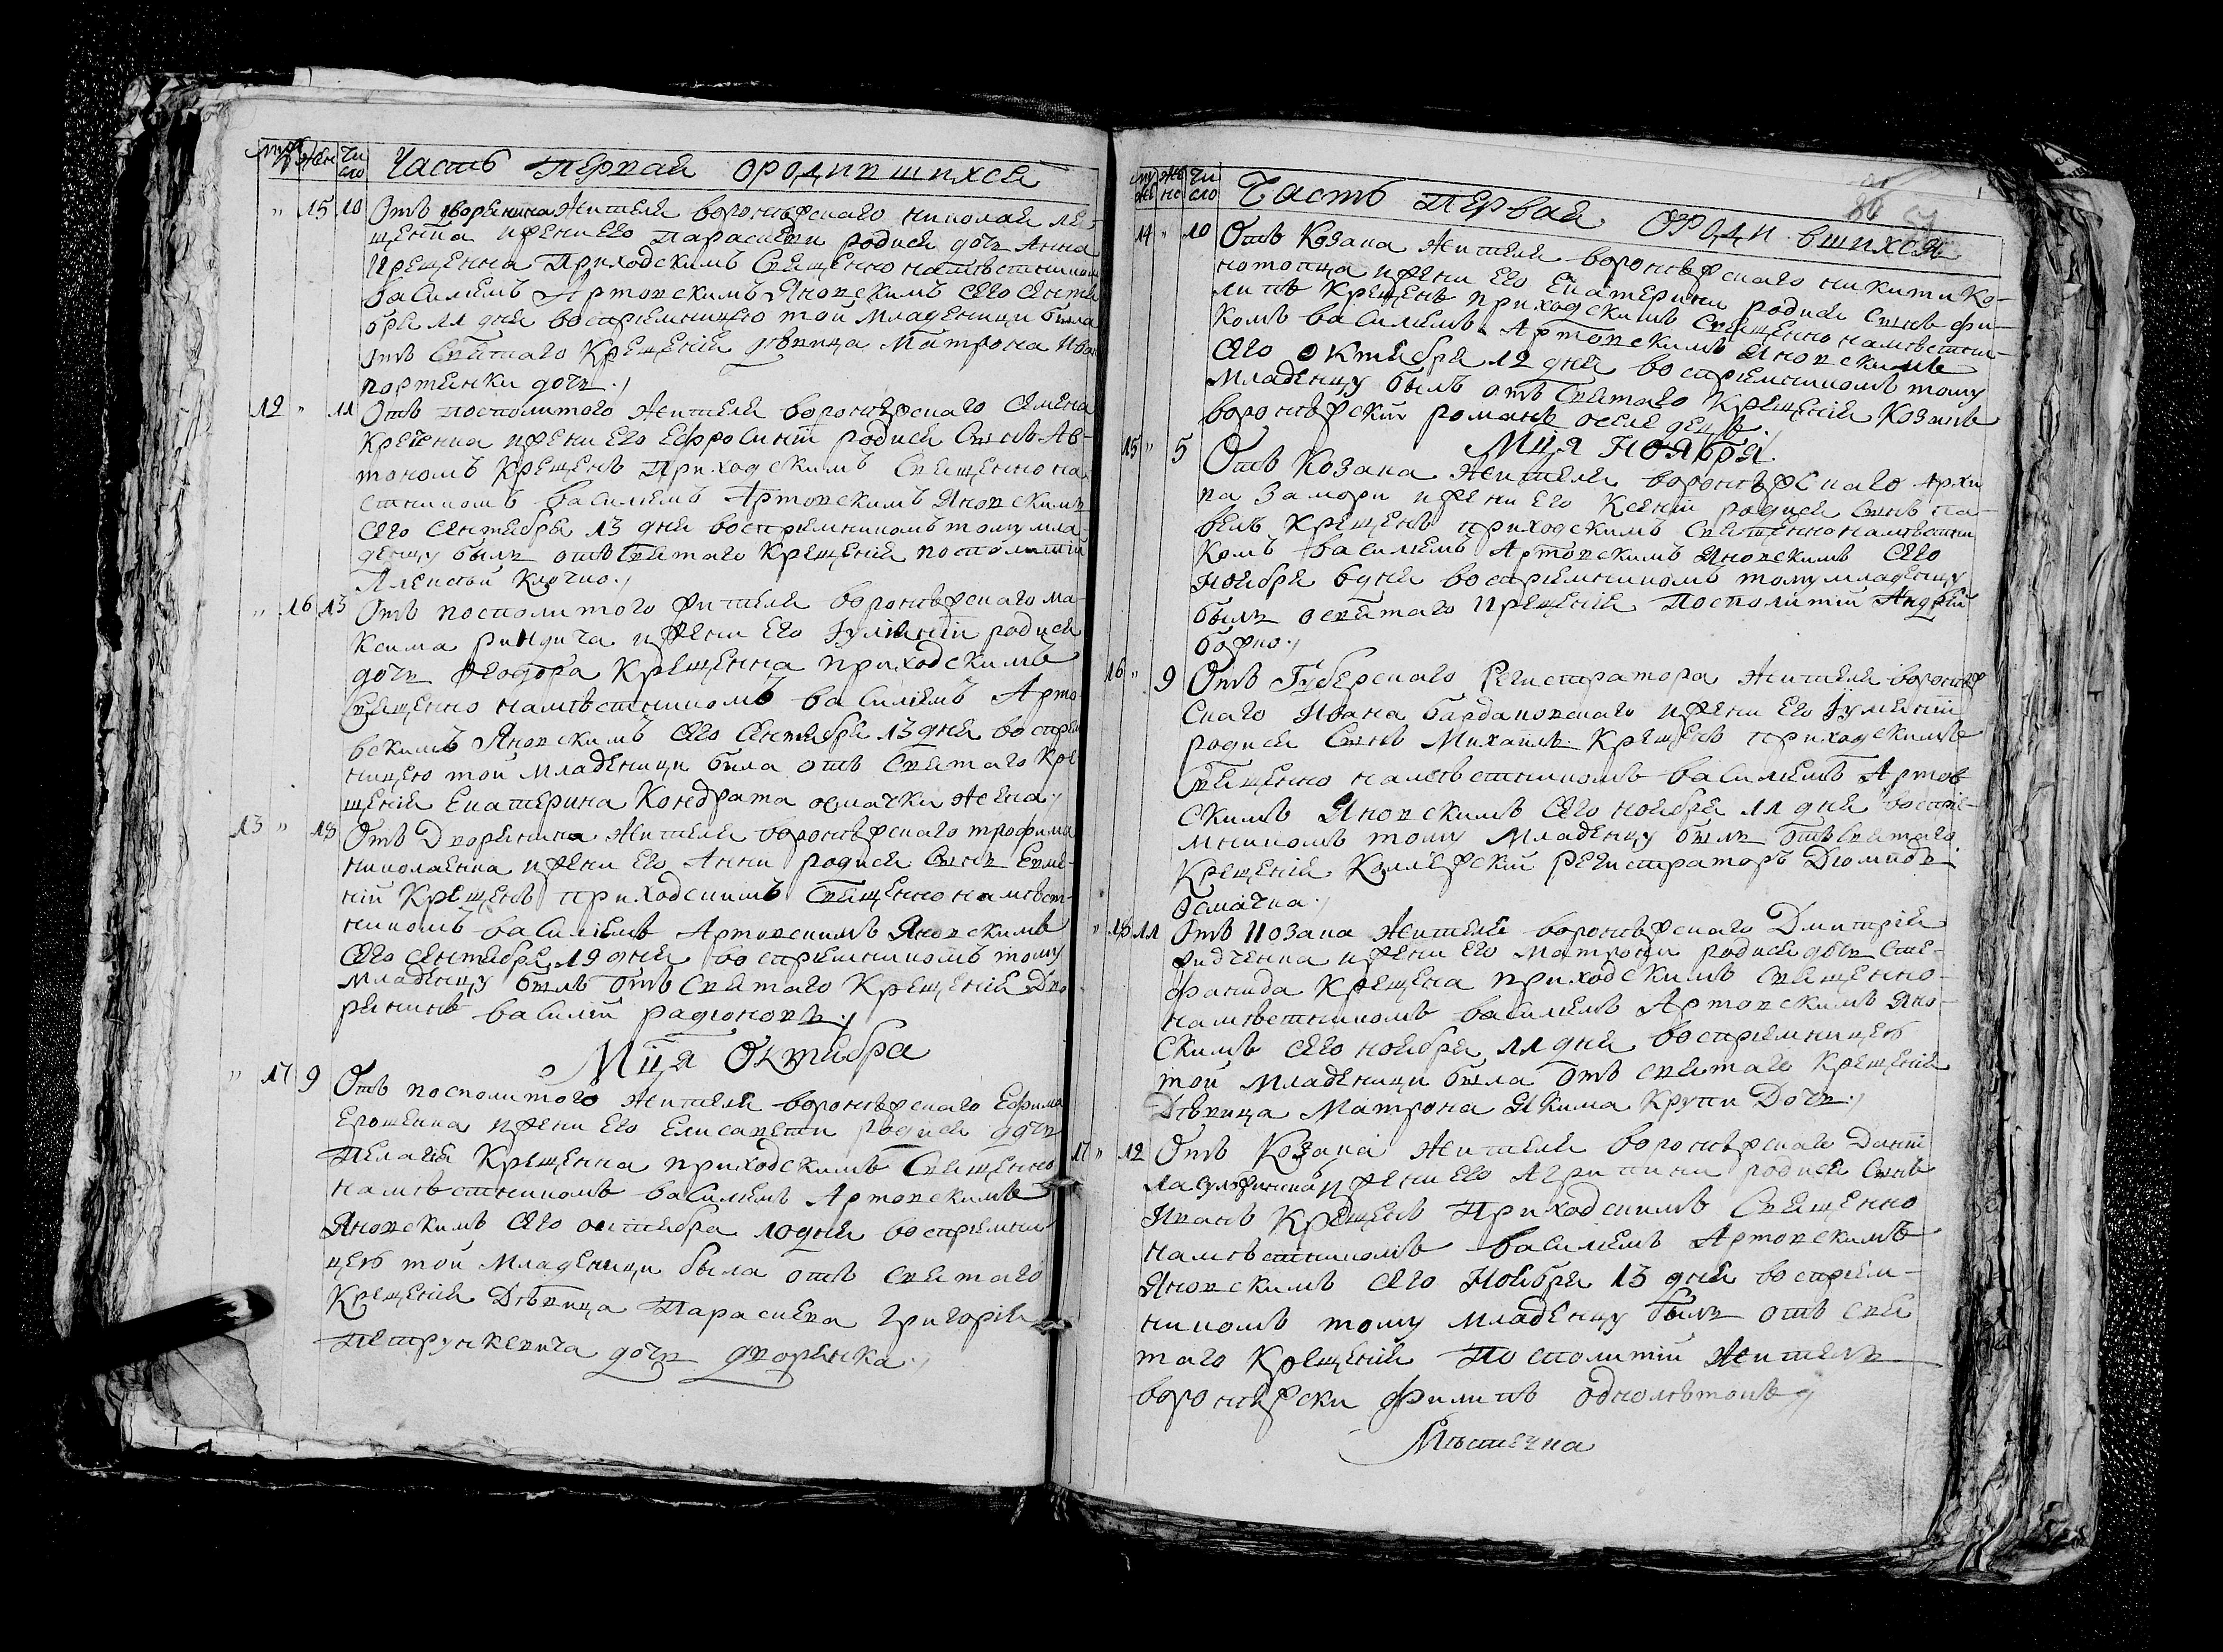 муж жен чи сло Часть первая ородившихся
" 15 10 Отъ дворенина жителя воронѣжскаго николая ле-
щенка ижени его параскеви родися дочъ Анна
Крещенна Приходскимъ Священно намѣстником
василиемъ Артовскимъ Яновскимъ сего сентя
бря 11 дня восприемницею той младеници била
отъ Святаго Крещенія дѣвица Матрона Ива
портянки дочъ
12 " 11 Отъ посполитого жителя воронѣжскаго семена
Кретенка ижени его Ефросиніи родися Сынъ Ав-
тономъ Крещенъ Приходскимъ Священно на
стникомъ василиемъ Артовскимъ Яновскимъ
сего сентября 13 дня восприемникомъ тому мла-
денцу былъ отъ Святаго Крещенія посполитій
Алексѣй Клочко
" 16 13 Отъ посполитого жителя воронѣжскаго ма-
ксима риндича ижени его Іулияніи родися
дочъ Феодора Крещенна приходскимъ
Священно намѣстникомъ василиемъ Арто-
вскимъ Яновскимъ сего сентября 13 дня воспрем
ницею той младеници била отъ Святаго Кре-
щенія Екатерина Кондрата осмачки жена
13 " 18 Отъ Дворянина жителя воронѣжскаго трофима
николаенка ижени его Анни родися Сынъ Евме-
ній Крещенъ приходскимъ Священно намѣст-
никомъ василиемъ Артовскимъ Яновскимъ
сего сентября 19 дня восприемникомъ тому
младенцу былъ отъ Святаго Крещенія Дво
рянинъ василій радионовъ
Мця Октября
" 17 9 Отъ посполитого жителя воронѣжскаго Ефима
Ерошенка ижени его Елисавети родися дочъ
Пелагія Крещенна приходскимъ Священно
намѣстникомъ василиемъ Артовскимъ
Яновскимъ сего октября 10 дня восприемни
цею той младеници была отъ святаго
Крещенія Дѣвица Параскева григорія
Петрункевича дочъ дворянка
муже жено чи сло Часть первая ородившихся
14 " 10 Отъ Козака жителя воронѣжскаго никити Ко-
нотопца ижени его Екатерини родися Сынъ фи-
липъ Крещенъ приходскимъ Священно намѣстни-
комъ василиемъ Артовскимъ Яновскимъ
сего октября 12 дня восприемникомъ тому
младенцу былъ отъ Святаго Крещенія Козакъ
воронѣжскій романъ оселедецъ
Мця ноября
15 " 5 Отъ Козака жителя воронѣжскаго Архи
па Замори ижени его Ксеніи родися сынъ па-
велъ Крещенъ приходскимъ Священно намѣстни
комъ василиемъ Артовскимъ Яновскимъ сего
ноября 6 дня восприемникомъ тому младенцу
былъ освятаго Крещенія посполитій Андрѣй
божко
16 " 9 Отъ Губерскаго Регистратора жителя воронѣж
скаго Ивана бардаковскаго ижени его Іулияніи
родися Сынъ Михаилъ Крещенъ приходскимъ
Священно намѣстникомъ василиемъ Артов
скимъ Яновскимъ сего ноября 11 дня воспрie-
мникомъ тому младенцу былъ отъ святаго
Крещенія Коллежскій регистраторъ Дiомидъ
Осмачка
" 18 11 Отъ Козака жителя воронѣжскаго Дмитрія
ижени его Матрони родися дочъ Сте-
фанида Крещена приходскимъ священно-
намѣстникомъ василиемъ Артовскимъ Яно-
скимъ сего ноября 11 дня восприемницею
той младеници была отъ святаго Крещенія
Дѣвица Матрона Якима Крупи Дочъ
17 " 12 Отъ Козака жителя воронѣжскаго Дании
ла ижени его Агрипини родися сынъ
Иванъ Крещенъ Приходскимъ Священно
намѣстникомъ василиемъ Артовскимъ
Яновскимъ сего Ноября 13 дня восприем-
никомъ тому младенцу былъ отъ свя
таго Крещенія Посполитій жителъ
воронѣжски филипъ однолѣтокъ
Мѣстечка